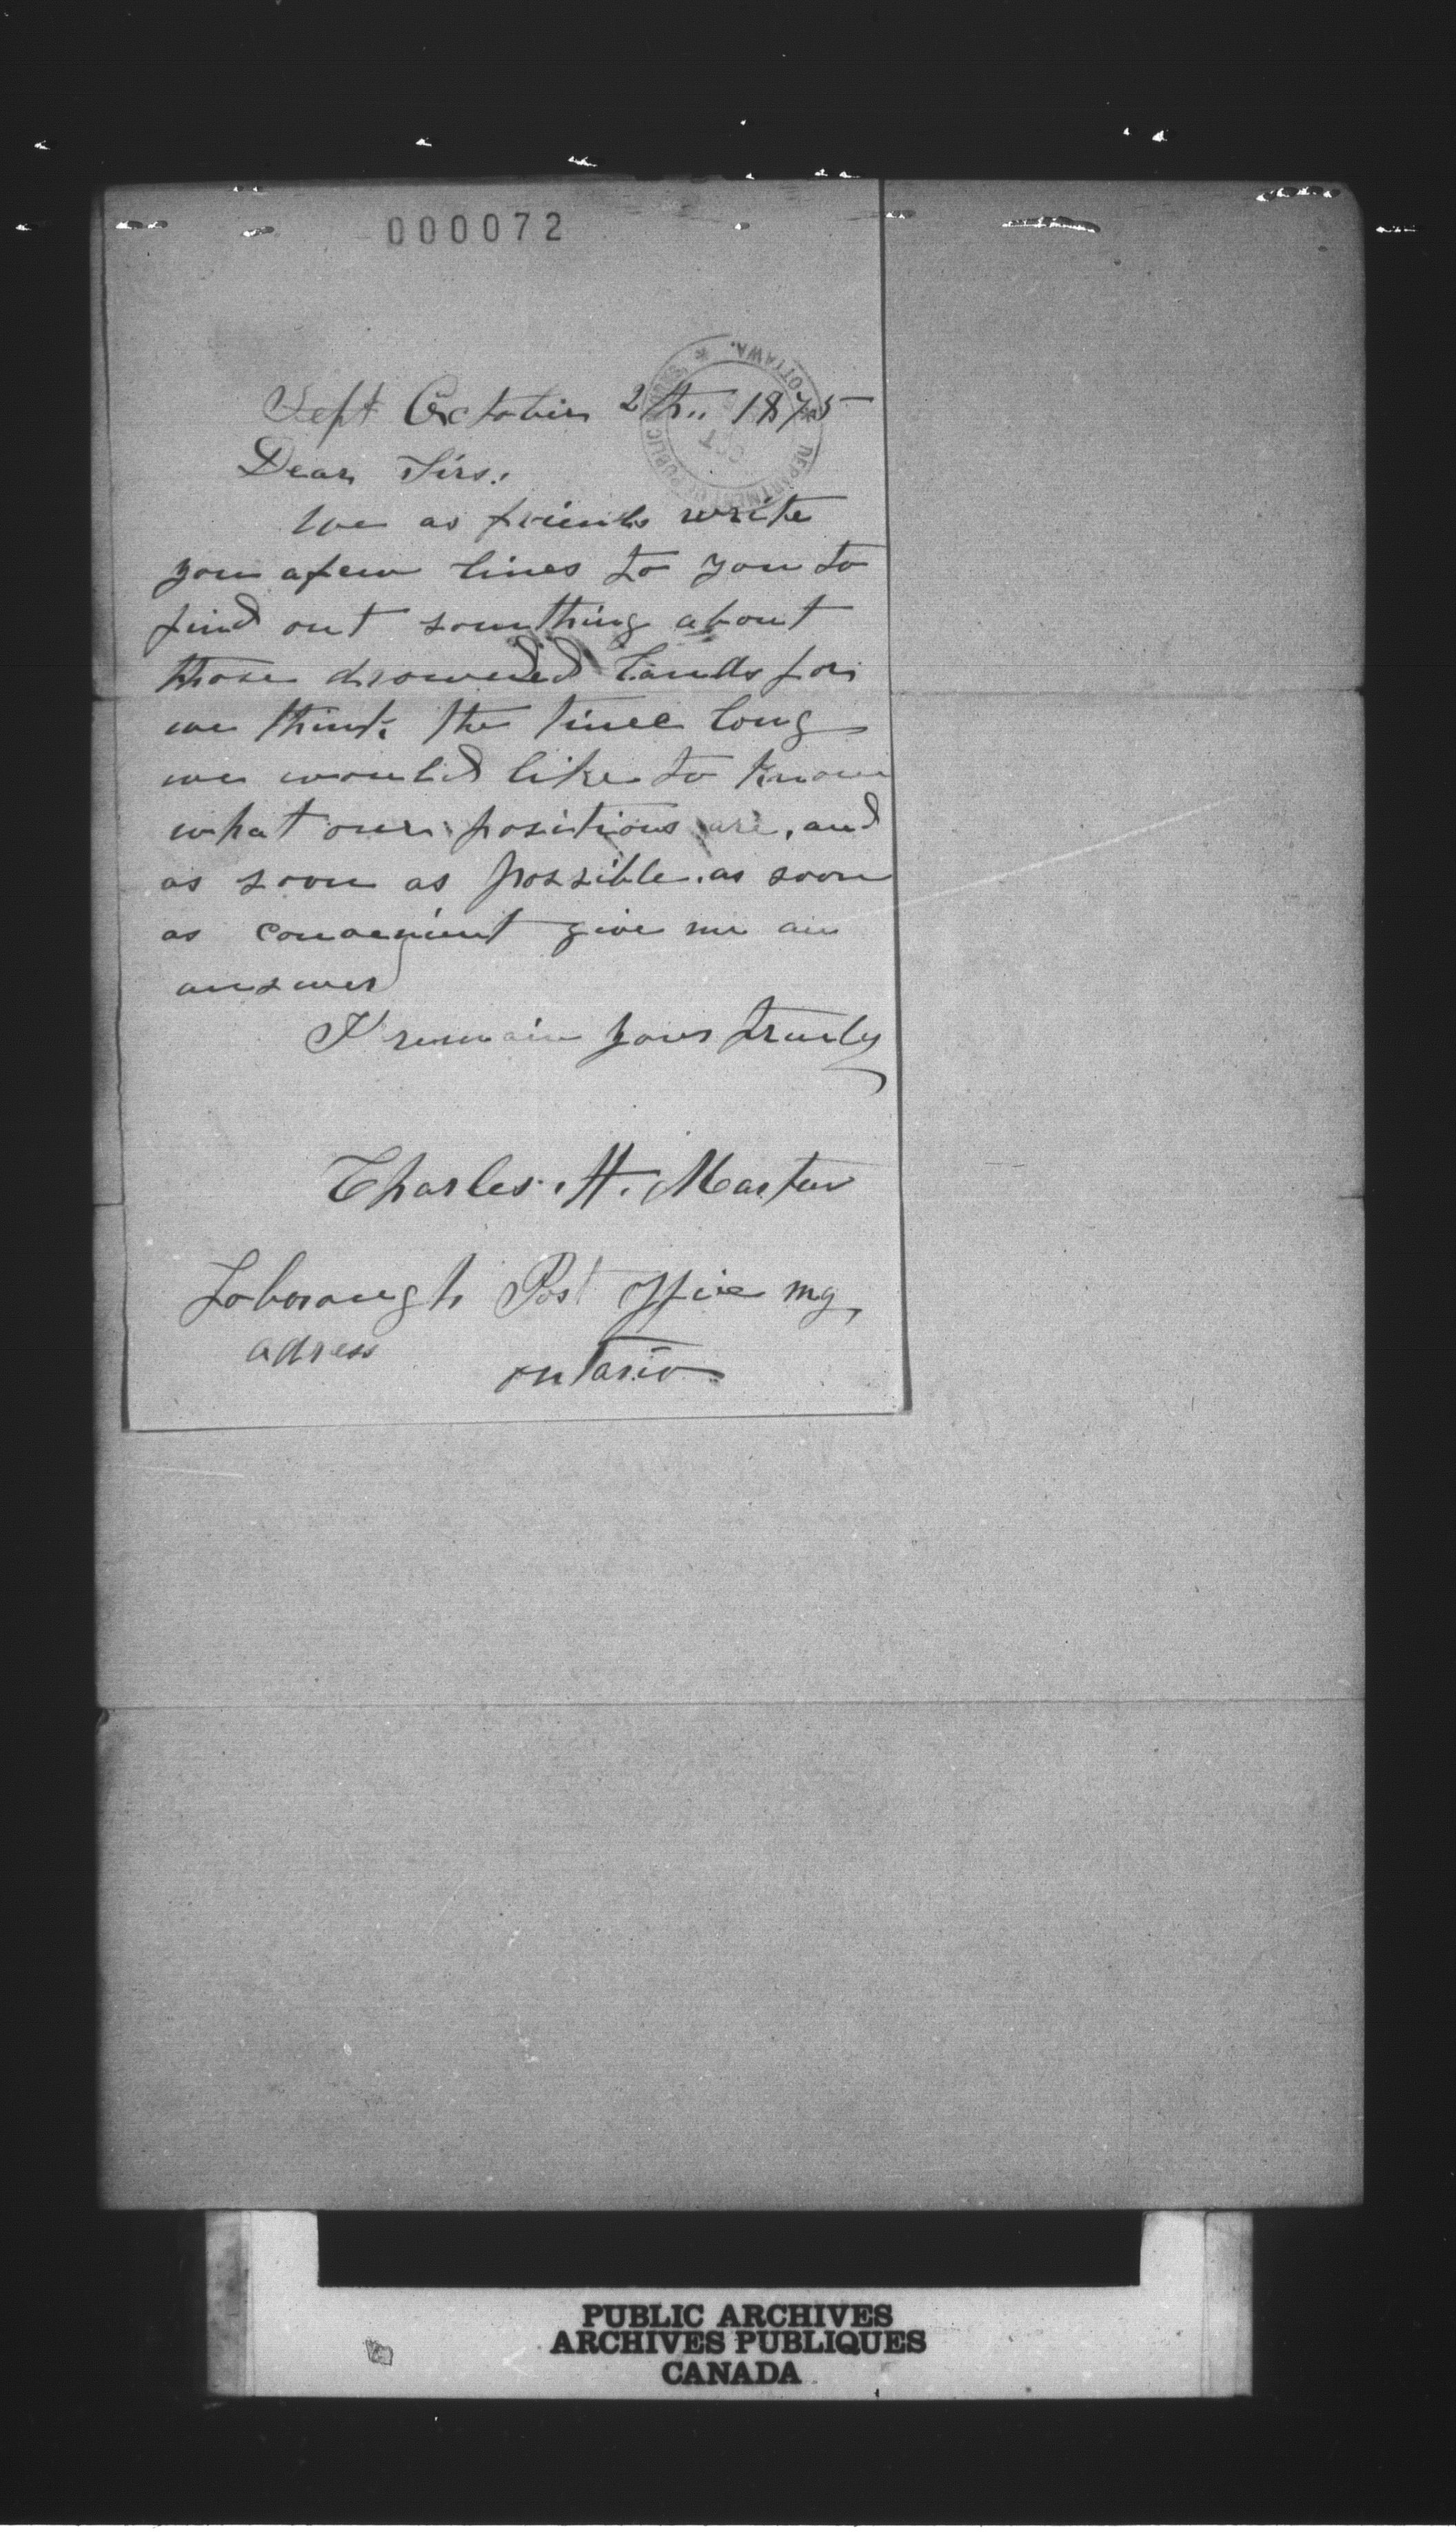 000072
DEPARTMENT OF PUBLIC WORKS * OTTAWA. *
OCT
Sept October 2th 1875
Dear Sirs.
We as friends write
you a few lines to you to
find out something about
those drownded lands for
we think the time long
we would like to know
what our positions are, and
as soon as possible. as soon
as convenient give me an
answer
I remain yours truly
Charles. H. Martin
Loborough Post offise my
adress
ontario
PUBLIC ARCHIVES
ARCHIVES PUBLIQUES
CANADA